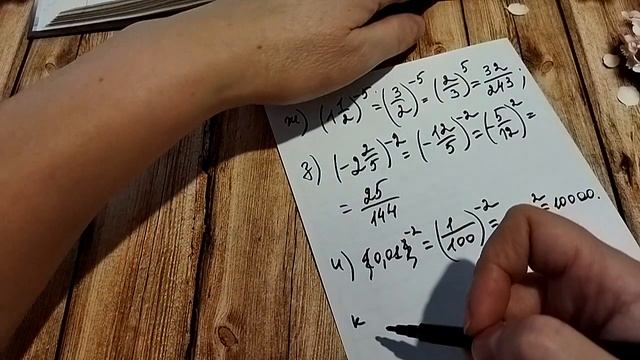 ж) (1 1/2)^-5 = (3/2)^-5 = (2/3)^5 = 32/243;
з) (-2 2/5)^-2 = (-12/5)^-2 = (-5/12)^2 =
= 25/144
и) (0,01)^-2 = (1/100)^-2 = ^2 = 10000.
к